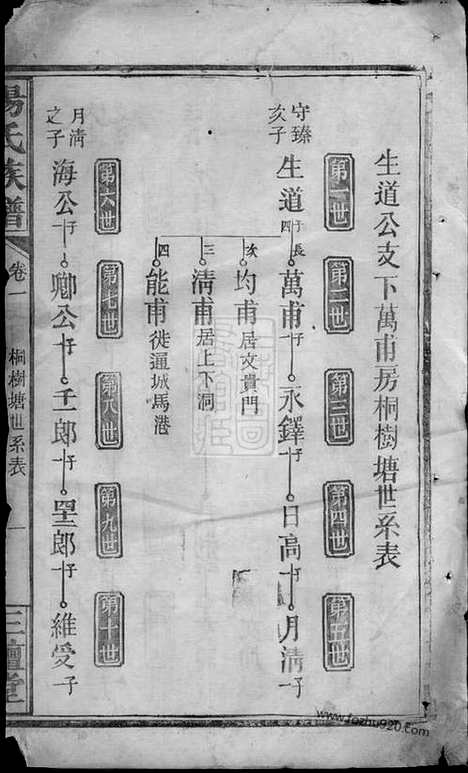 生道公支下萬甫房桐樹塘世系表
第一世
第二世
第三世
第四世
第五世
守臻
次子
生道 子四 長 萬甫 一子 永鐸 一子 日高 一子 月清 子
次 均甫 居文貴門
三 清甫 居上下洞
四 能甫 徙通城馬港
第六世
第七世
第八世
第九世
第十世
月清
之子
海公 一子 卿公 一子 千一郎 一子 里郎 一子 維受 子
楊氏族譜
卷一
桐樹塘世系表
一
三鱣堂
www.fozhu920.com